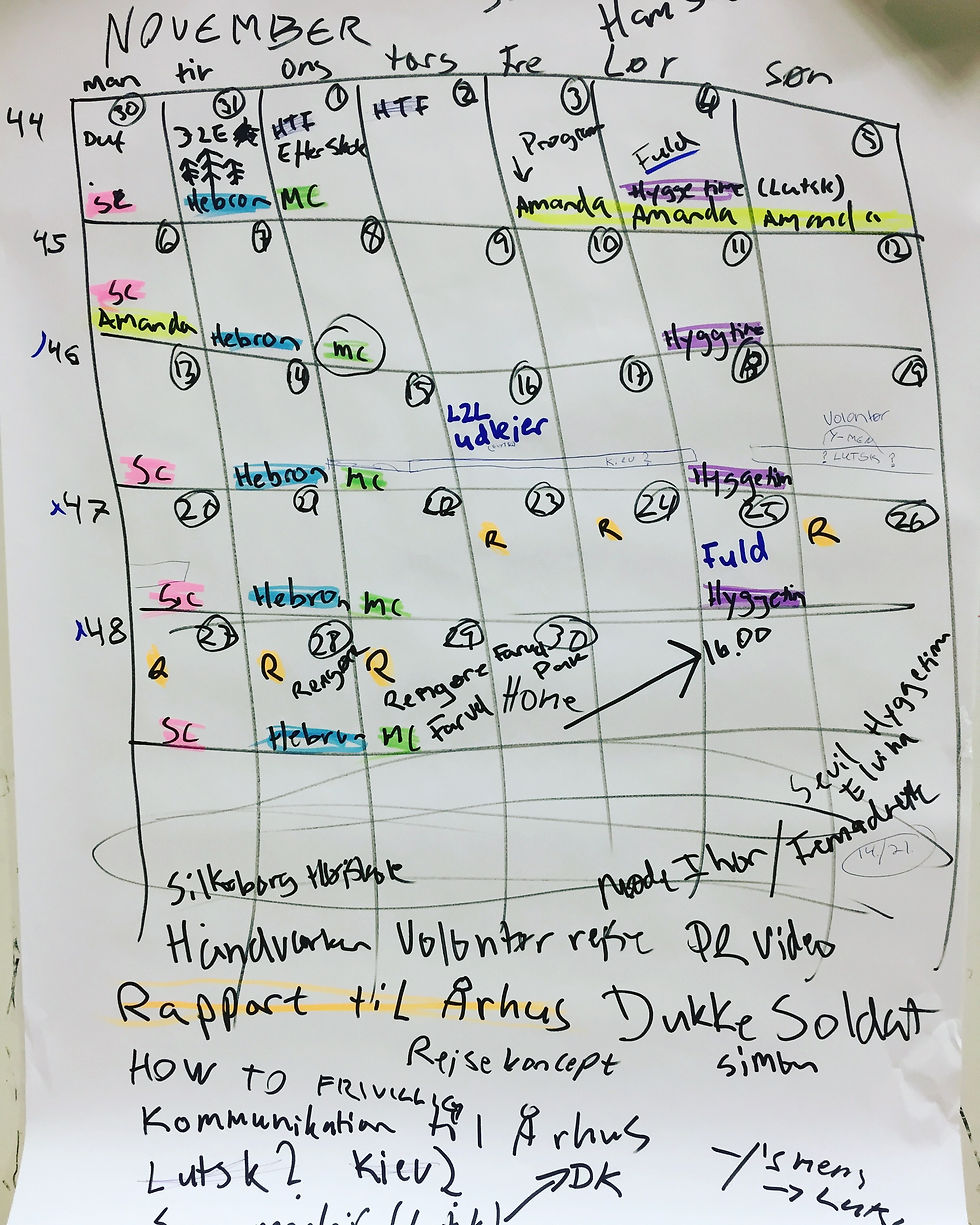 NOVEMBER
man tir ons tors Fre Lør søn
44 30 31 1 2 3 4 5
HTF HTF Program
Fuld
SC Hebron MC Amanda Hygge time (Lutsk)
Amanda Amanda
45 6 7 8 9 10 11 12
SC
Amanda Hebron MC Hyggtime
46 13 14 15 16 17 18 19
L2L
udlejer
Volontør
Y-MEN
KIEV? ? LUTSK ?
SC Hebron MC Hyggetim
x47 20 21 22 23 24 25 26
R R R
Fuld
SC Hebron MC Hyggetim
x48 27 28 29 30
R R R
Rengøre Farvel
HOME
16.00
SC Hebron MC Farvel
Sevil Hyggetim
Elvina
14/21
Silkeborg Højskole møde Ihor /
Volontør rejse PR video
Rapport til Århus Dukke Soldat
Rejsekoncept simon
HOW TO FRIVILLIG
Kommunikation til Århus
Lutsk? Kiev? DK Y's mens
→ Lutsk